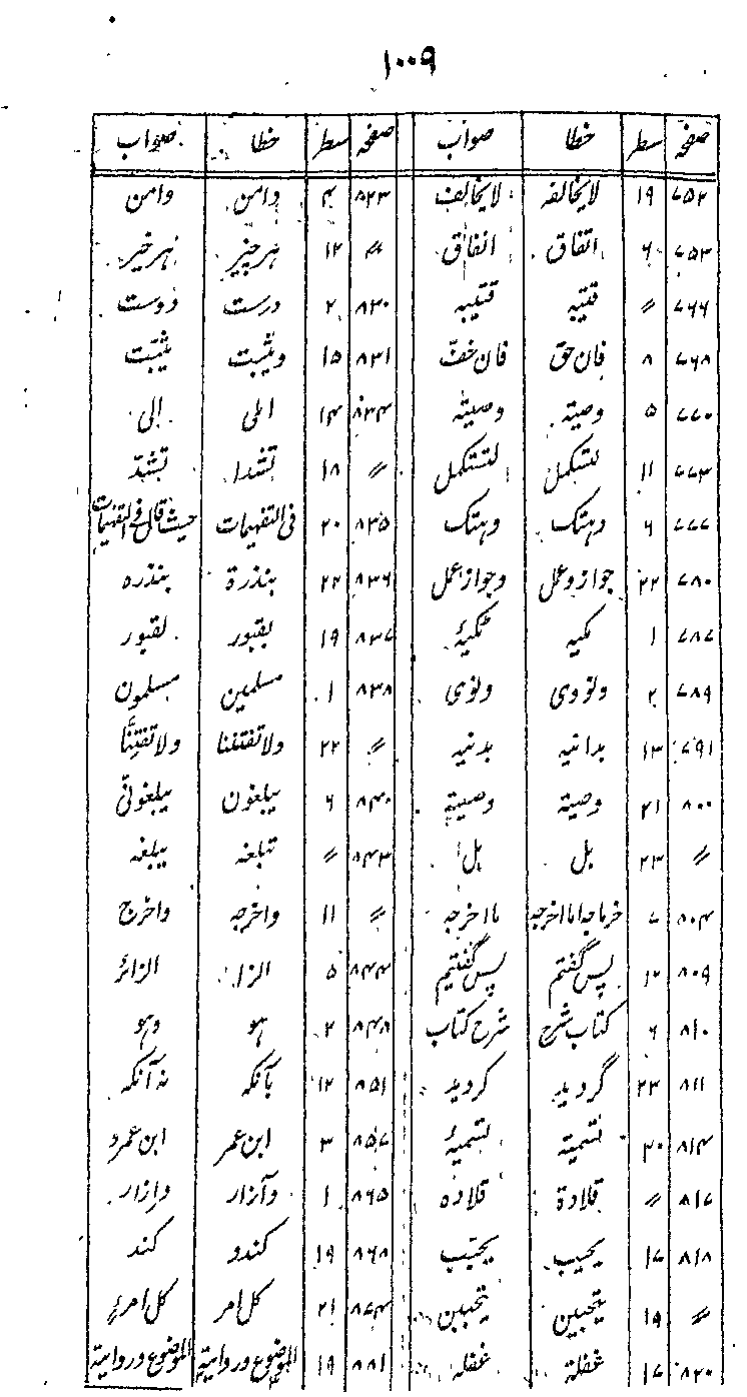 ۱۰۰۹
صفحہ سطر خطا صواب صفحہ سطر خطا صواب
۷۵۲ ۱۹ لایخالفہ لایخالف ۸۲۳ ۴ دامن وامن
۷۵۳ ۶ اتفاق انفاق 〃 ۱۲ ہرچیز ہرخیر
۷۶۶ 〃 قتبہ قتیبہ ۸۳۰ ۲ درست دوست
۷۶۸ ۸ فان حق فان خفت ۸۳۱ ۱۵ ویثبت یثبت
۷۷۰ ۵ وصیتہ وصیتہ ۸۳۴ ۱۴ املی الی
۷۷۳ ۱۱ لتشکمل لتستکمل 〃 ۱۸ تشدا تشد
۷۷۷ ۶ دہتک وہتک ۸۳۵ ۲۰ فی التفہیمات حیث قال فی التفہیمات
۷۸۰ ۲۲ جواز وعمل وجواز عمل ۸۳۶ ۲۲ بنذرة بنذرہ
۷۸۷ ۱ مکیہ تکیۂ ۸۳۷ ۱۹ بقبور لقبور
۷۸۹ ۲ ونووی ونوی ۸۳۸ ۱ مسلمین مسلمون
۷۹۱ ۱۳ بدانیہ بدنیہ 〃 ۲۲ ولاتفتننا ولاتفتِنَّا
۸۰۰ ۲۱ وصیتہ وصیة ۸۴۰ ۶ یبلغون یبلغونی
〃 ۲۳ بل بل ۸۴۳ 〃 تبلغہ یبلغہ
۸۰۴ ۷ خرماجہ اما اخرجہ ما اخرجہ 〃 ۱۱ واخرجہ واخرج
۸۰۹ ۱۲ پس گفتم پس گفتیم ۸۴۴ ۵ الزا الزائر
۸۱۰ ۶ کتاب شرح شرح کتاب ۸۴۸ ۲ ہو وہو
۸۱۱ ۲۳ گردید کردید ۸۵۱ ۱۲ بآنکہ نہ آنکہ
۸۱۴ ۲۰ تسمیة تسمیۂ ۸۵۷ ۳ ابن عمر ابن عمرو
۸۱۷ 〃 قلادة قلادہ ۸۶۵ ۱ وآزار وازار
۸۱۸ ۱۷ یحبب یحبب ۸۶۸ ۱۹ کندو کند
〃 ۱۹ یتحببن یتحببن ۸۷۴ ۲۱ کل امر کل امرءٍ
۸۲۰ ۱۷ غفلة غفلہ ۸۸۱ ۱۹ الموضوع وروایتہ الموضوع وروایة